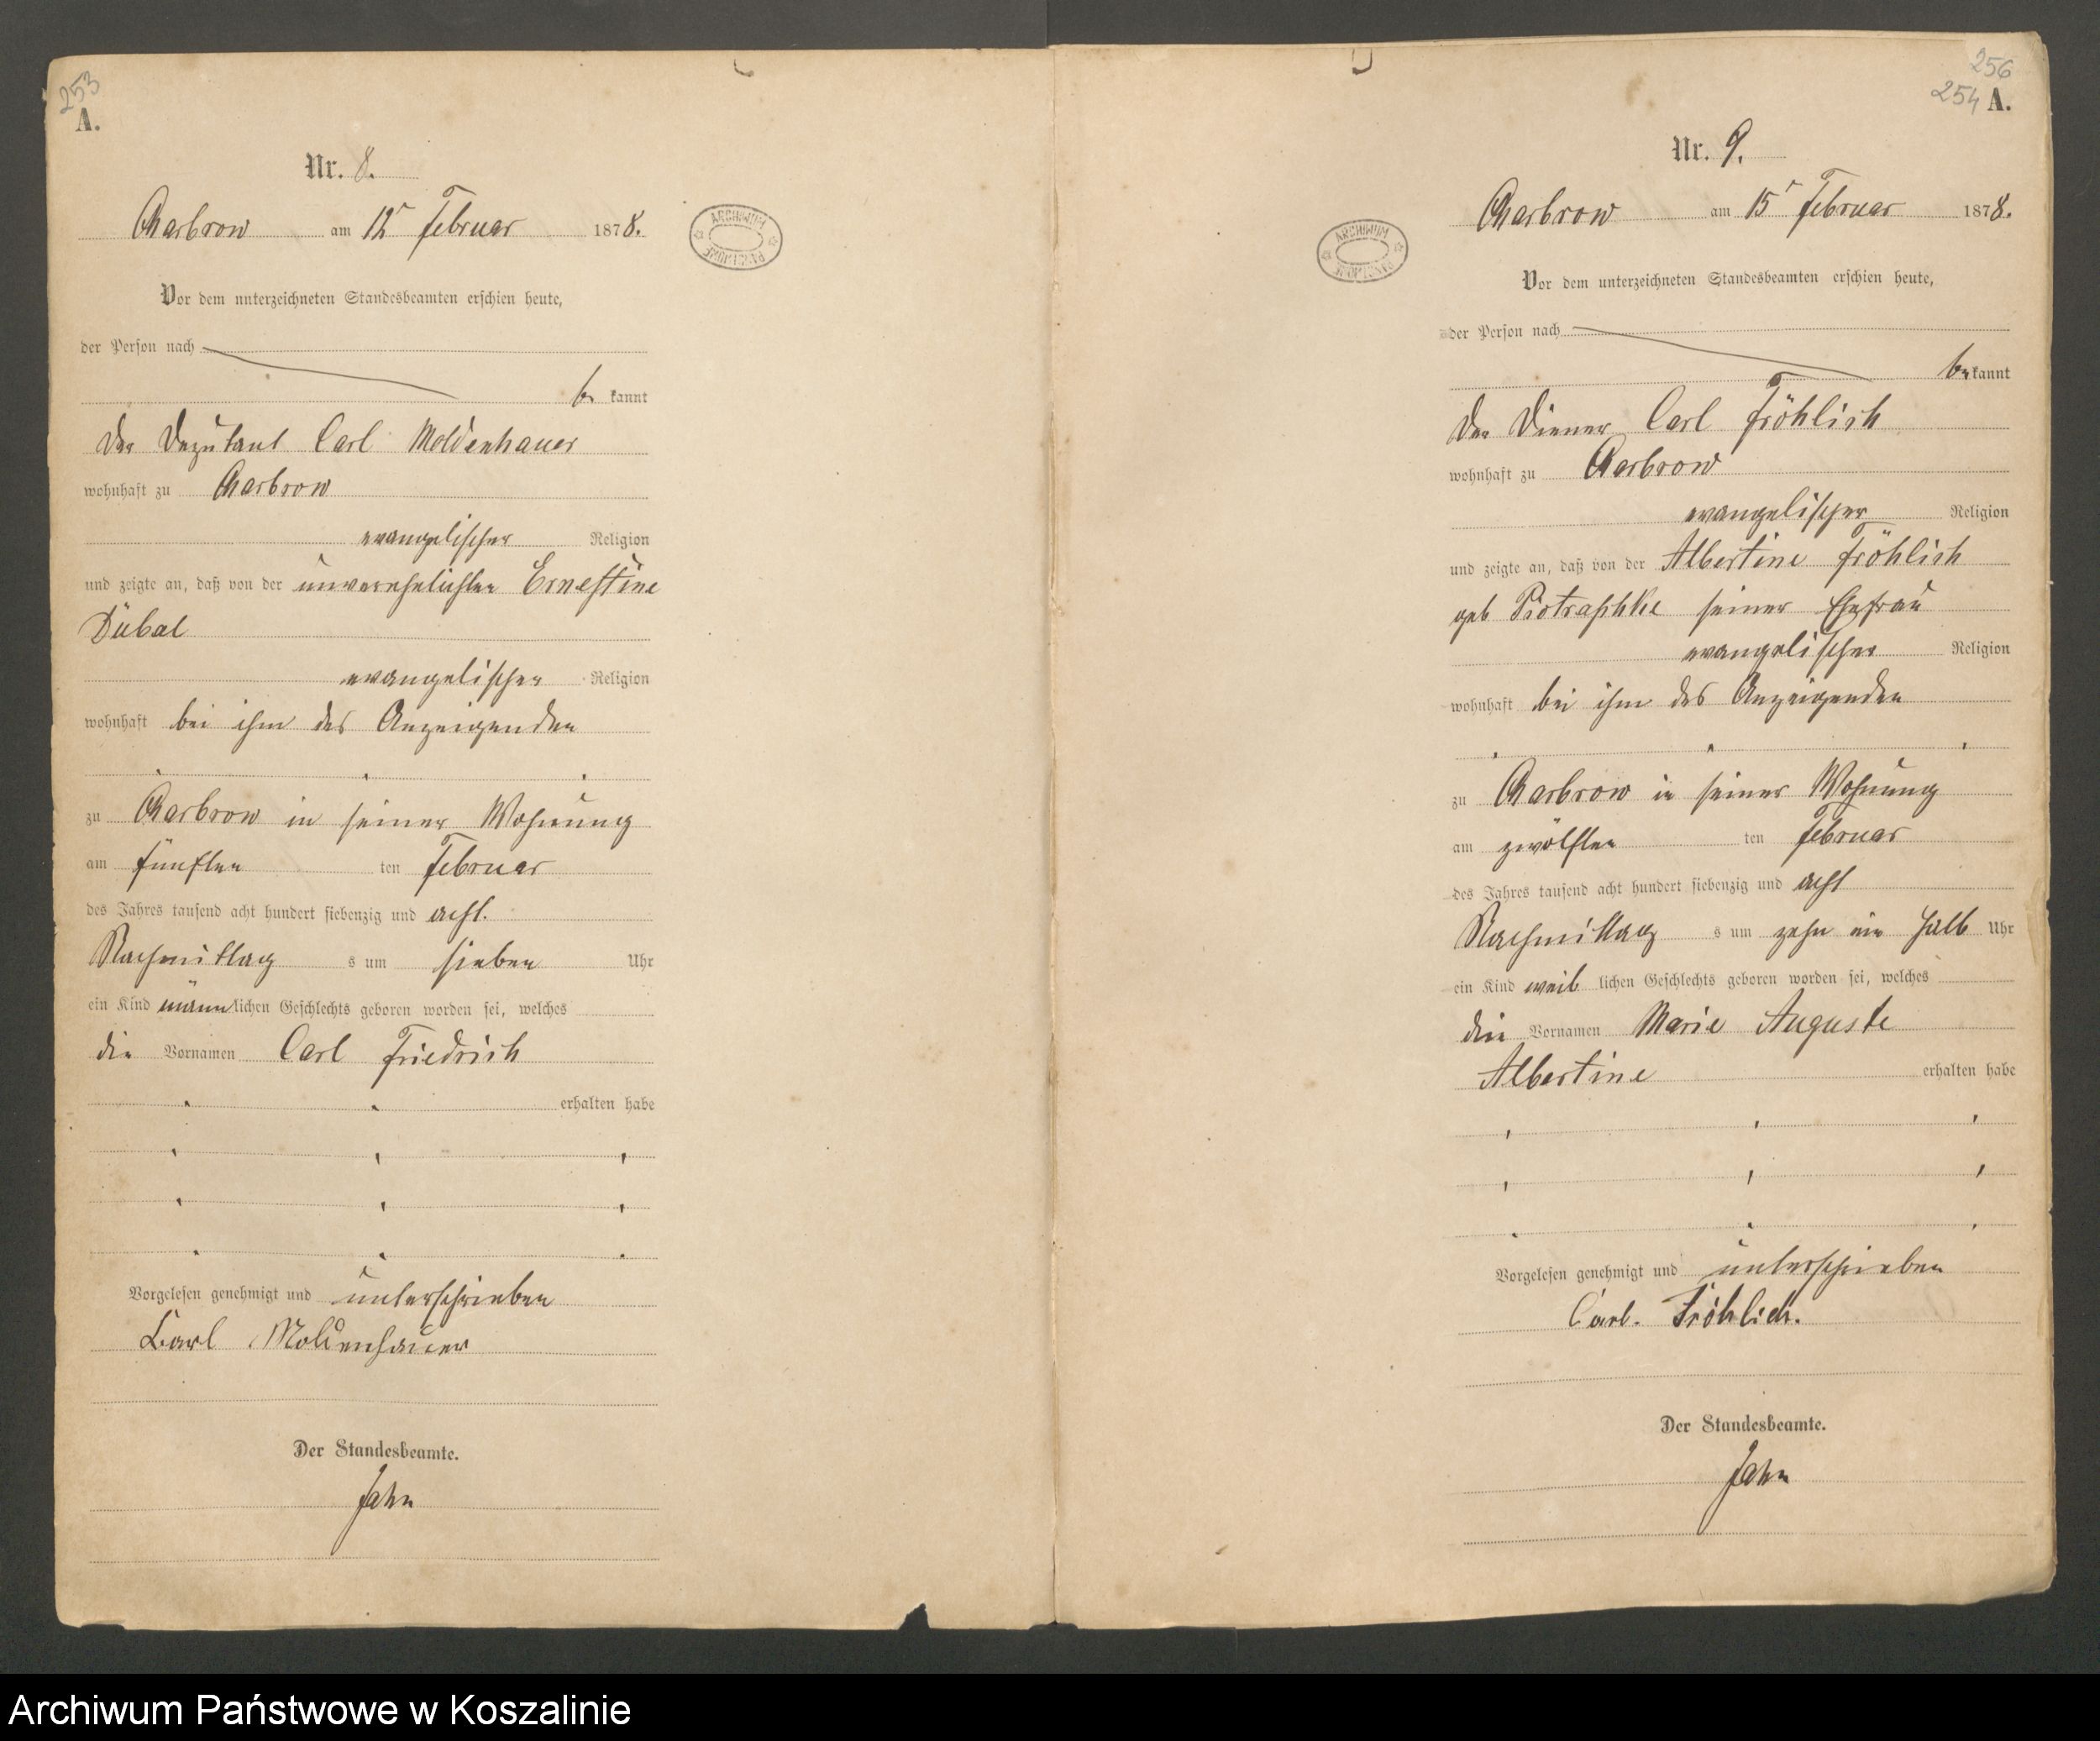 253
A.
Nr. 8.
Charbrow am 12ʳ Februar 1878.
ARCHIWUM PAŃSTWOWE
Vor dem unterzeichneten Standesbeamten erschien heute,
der Person nach
be kannt
der Deputant Carl Moldenhauer
wohnhaft zu Charbrow
evangelischer Religion
und zeigte an, daß von der unverehelichten Ernestine
Dübal
evangelischer Religion
wohnhaft bei ihm des Anzeigenden
zu Charbrow in seiner Wohnung
am fünften ten Februar
des Jahres tausend acht hundert siebenzig und acht.
Nachmittag s um sieben Uhr
ein Kind männlichen Geschlechts geboren worden sei, welches
die Vornamen Carl Friedrich
erhalten habe
Vorgelesen genehmigt und unterschrieben
Carl Moldenhauer
Der Standesbeamte.
Jahn
256
254 A.
Nr. 9.
Charbrow am 15ʳ Februar 1878.
ARCHIWUM PAŃSTWOWE
Vor dem unterzeichneten Standesbeamten erschien heute,
der Person nach
be kannt
der Diener Carl Fröhlich
wohnhaft zu Charbrow
evangelischer Religion
und zeigte an, daß von der Albertine Fröhlich
geb Piotraschke seiner Ehefrau
evangelischer Religion
wohnhaft bei ihm des Anzeigenden
zu Charbrow in seiner Wohnung
am zwölften ten Februar
des Jahres tausend acht hundert siebenzig und acht
Nachmittag s um zehn ein halb Uhr
ein Kind weib lichen Geschlechts geboren worden sei, welches
die Vornamen Marie Auguste
Albertine erhalten habe
Vorgelesen genehmigt und unterschrieben
Carl. Fröhlich.
Der Standesbeamte.
Jahn
Archiwum Państwowe w Koszalinie